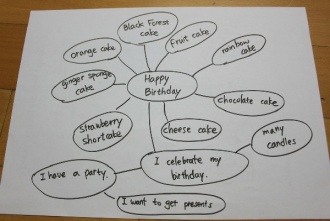 Black Forest
cake
fruit cake
orange cake
rainbow
cake
Happy
Birthday
ginger sponge
cake
chocolate cake
strawberry
shortcake
cheese cake
many
candles
I celebrate my
birthday.
I have a party.
I want to get presents